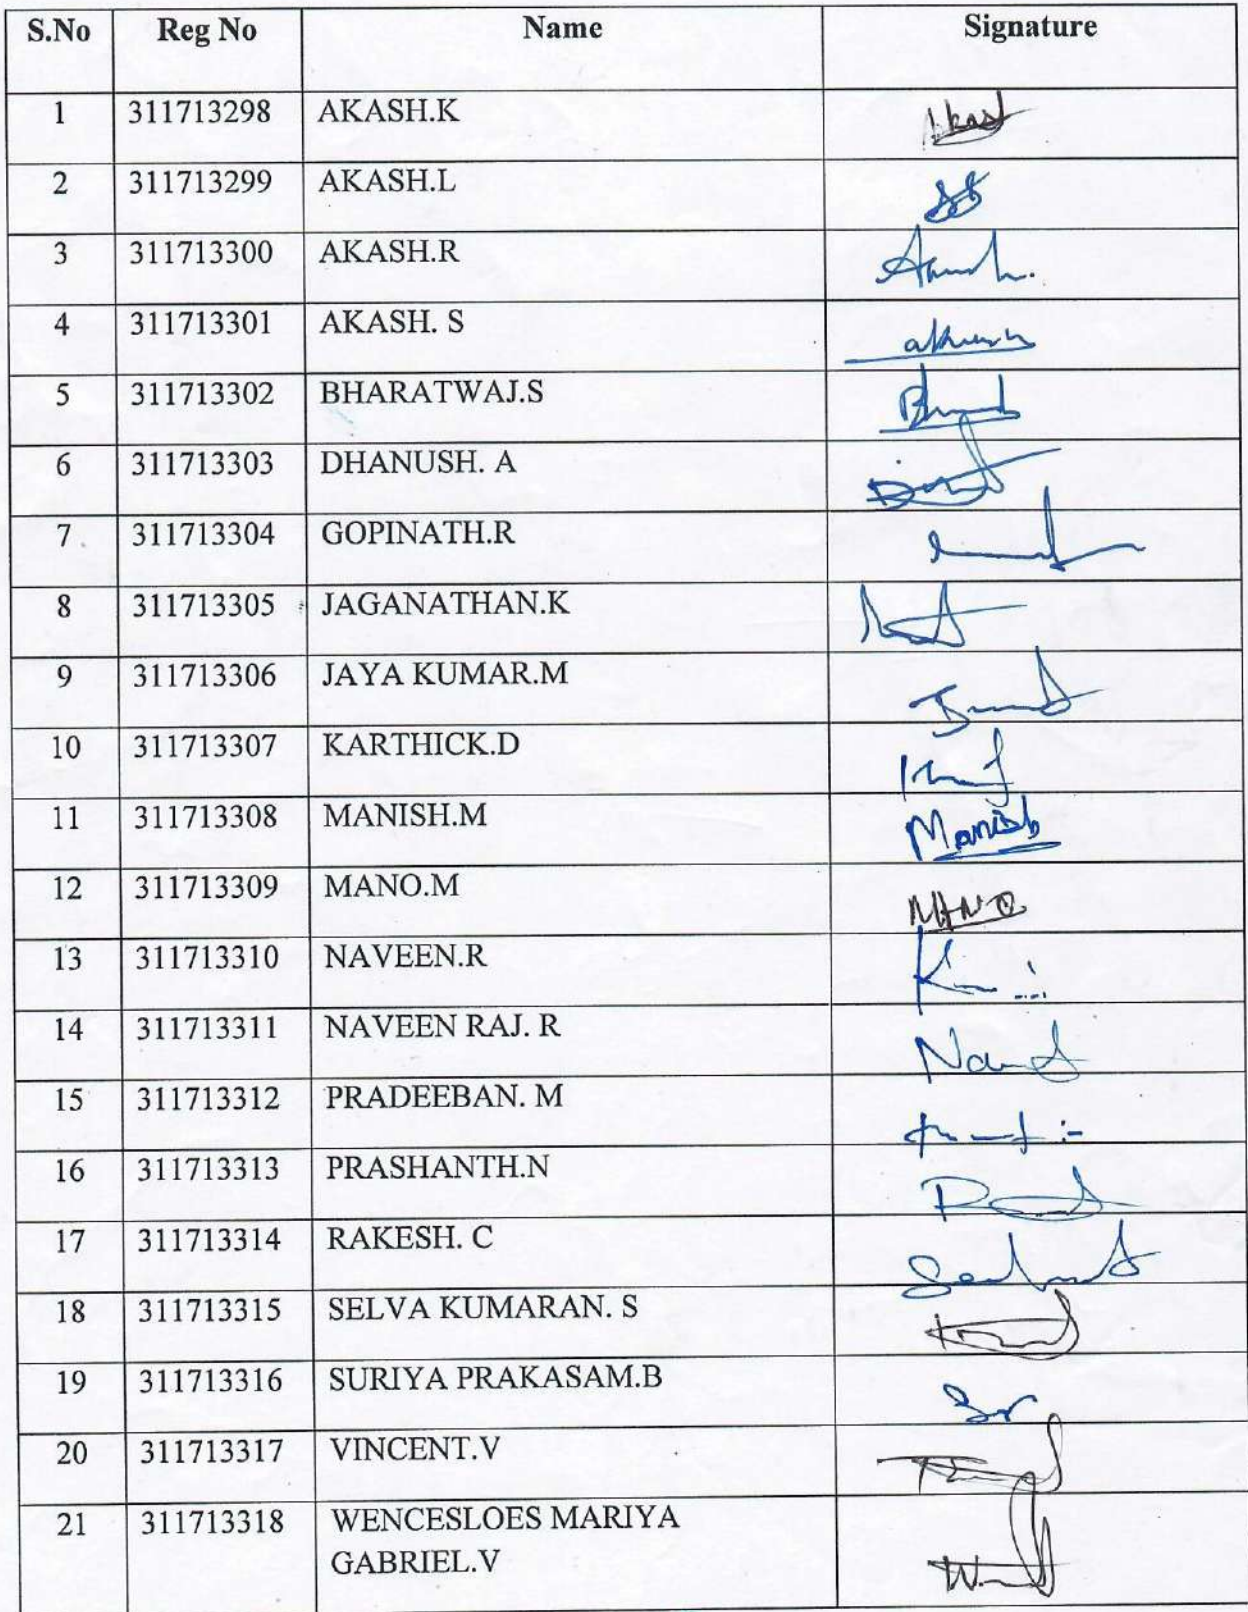 S.No Reg No Name Signature
1 311713298 AKASH.K Akash
2 311713299 AKASH.L
3 311713300 AKASH.R
4 311713301 AKASH. S
5 311713302 BHARATWAJ.S
6 311713303 DHANUSH. A
7 311713304 GOPINATH.R
8 311713305 JAGANATHAN.K
9 311713306 JAYA KUMAR.M
10 311713307 KARTHICK.D
11 311713308 MANISH.M Manish
12 311713309 MANO.M MANO
13 311713310 NAVEEN.R
14 311713311 NAVEEN RAJ. R
15 311713312 PRADEEBAN. M
16 311713313 PRASHANTH.N
17 311713314 RAKESH. C
18 311713315 SELVA KUMARAN. S
19 311713316 SURIYA PRAKASAM.B
20 311713317 VINCENT.V
21 311713318 WENCESLOES MARIYA
GABRIEL.V